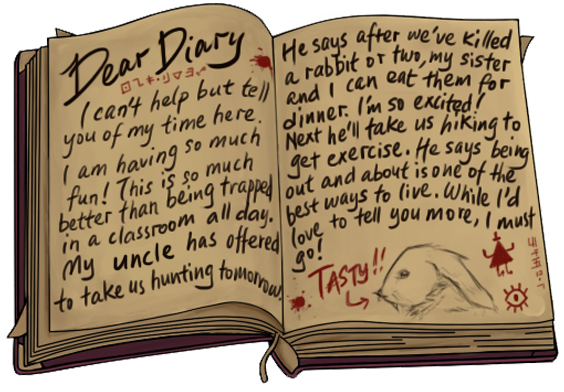 Dear Diary
I can't help but tell
you of my time here.
I am having so much
fun! This is so much
better than being trapped
in a classroom all day.
My uncle has offered
to take us hunting tomorrow.
He says after we've killed
a rabbit or two, my sister
and I can eat them for
dinner. I'm so excited!
Next he'll take us hiking to
get exercise. He says being
out and about is one of the
best ways to live. While I'd
love to tell you more, I must
go!
TASTY!!